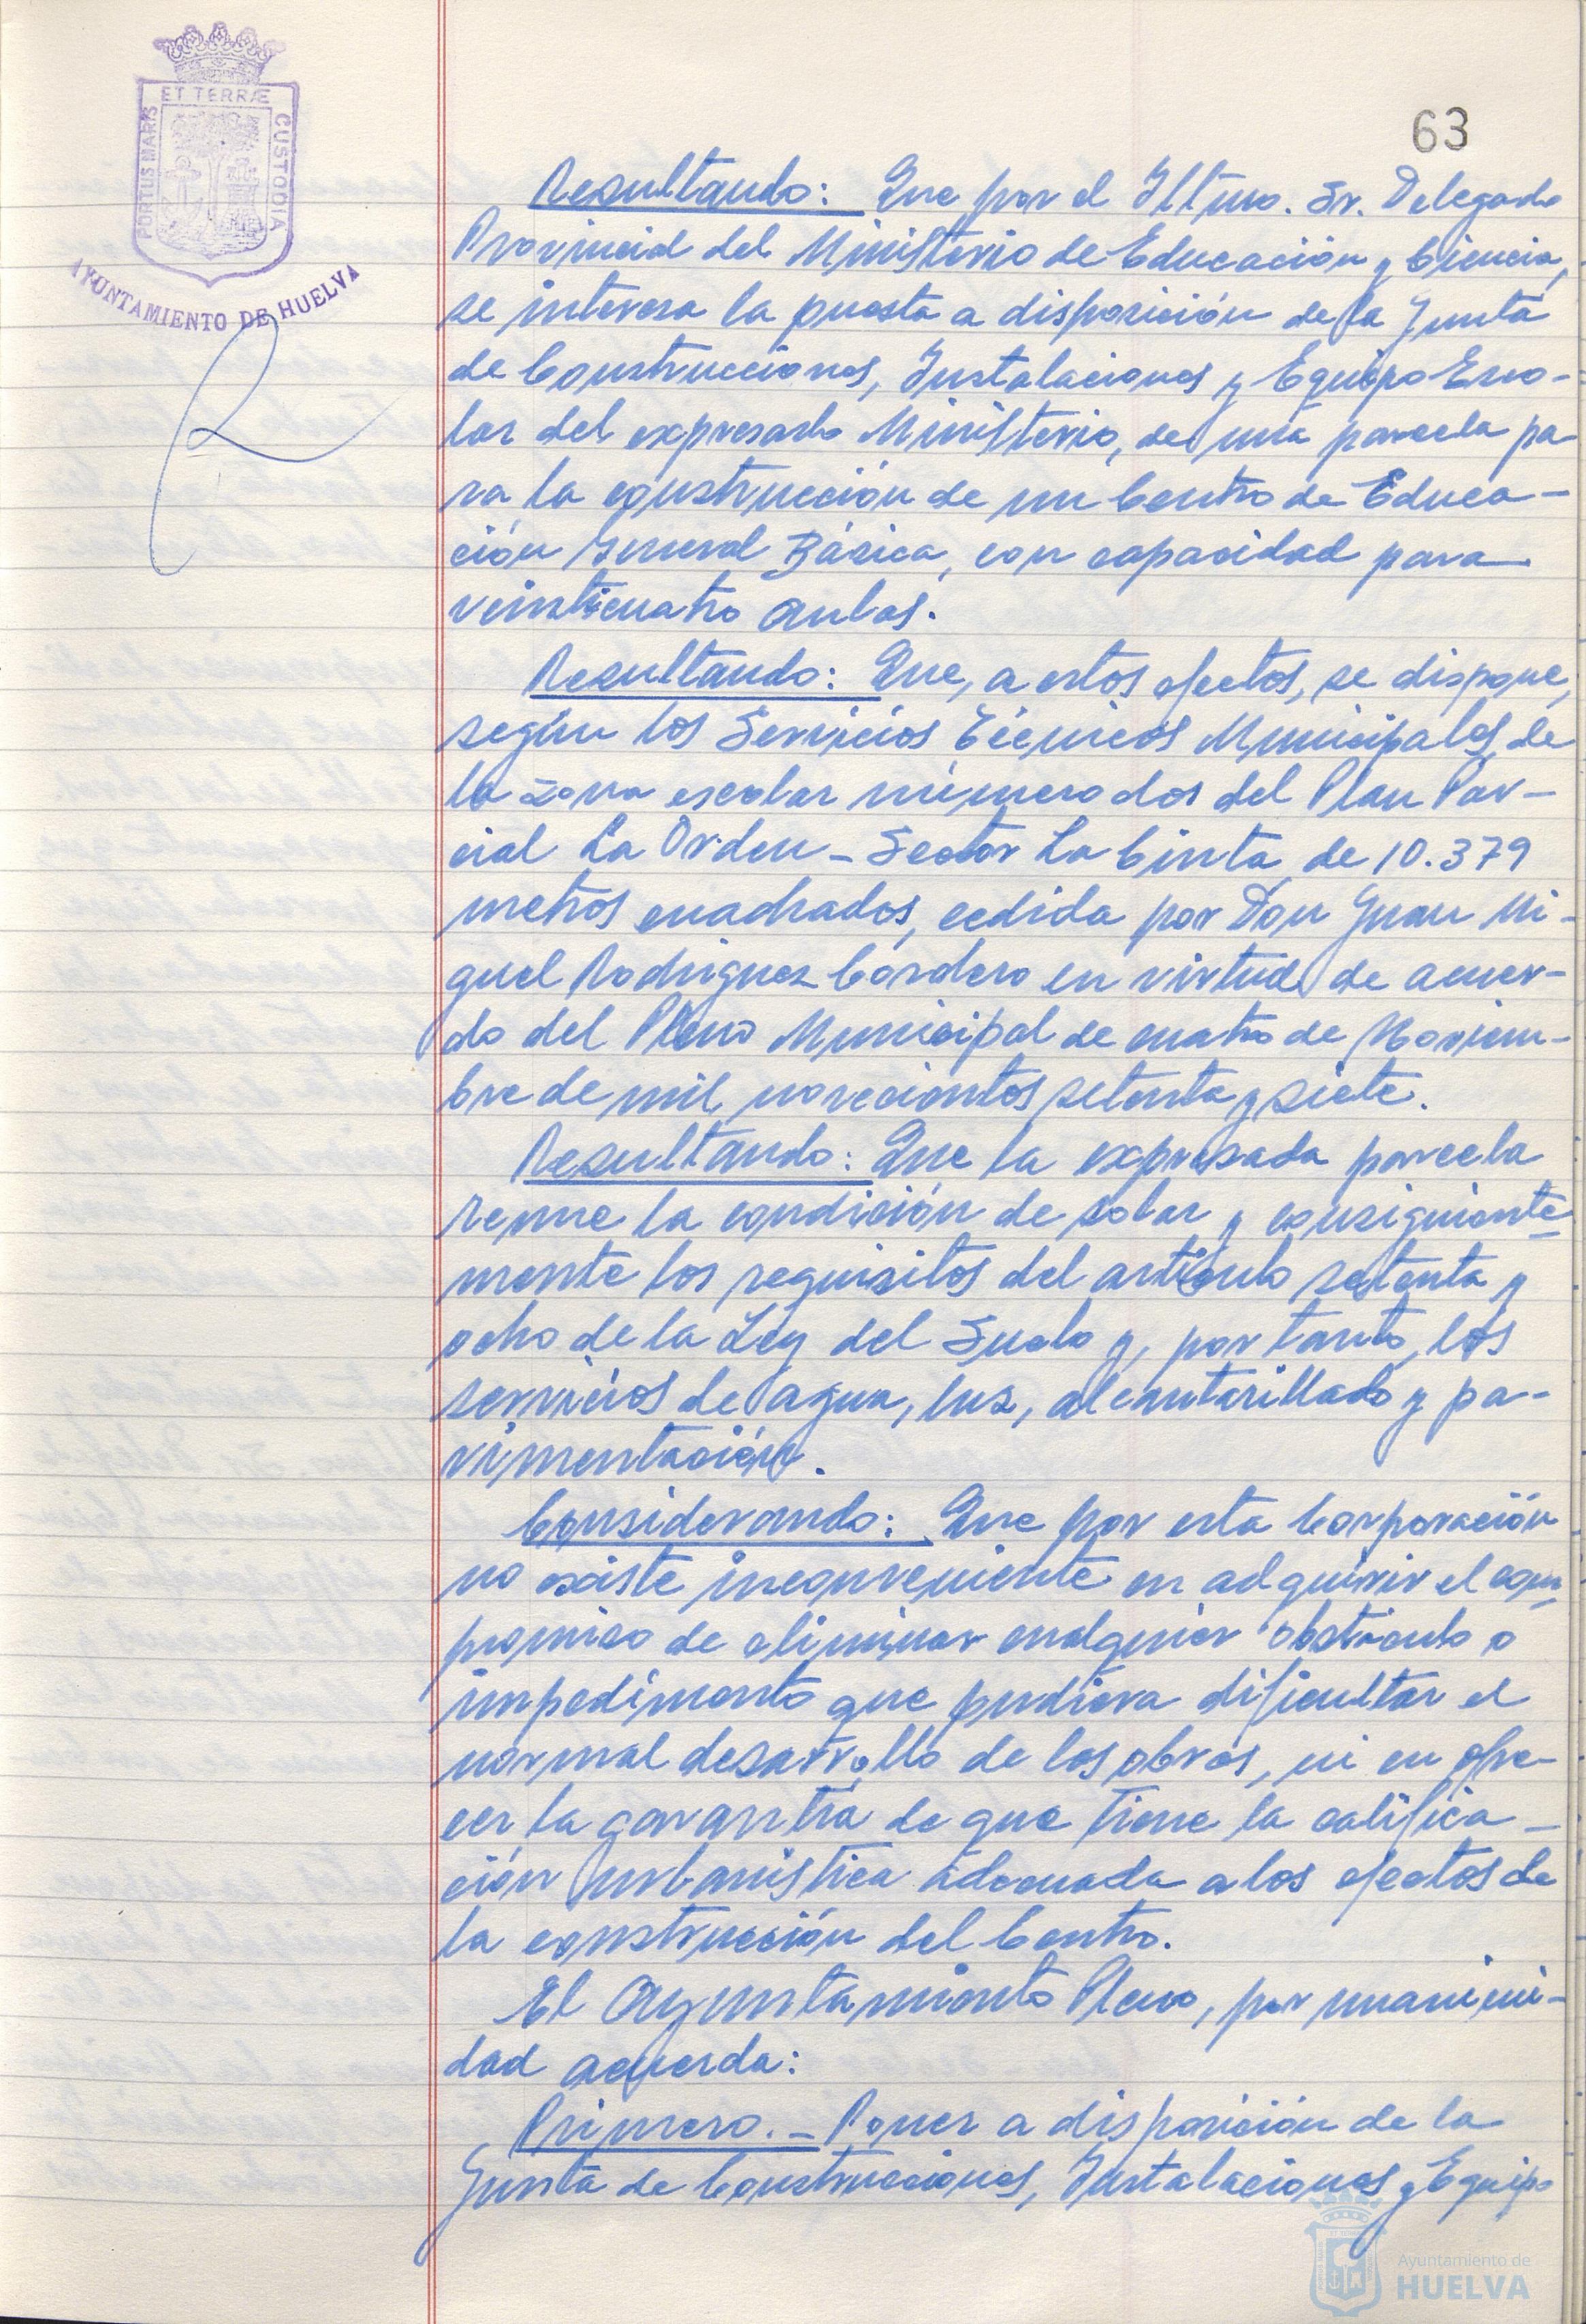 ET TERRÆ
PORTUS MARIS
CUSTODIA
AYUNTAMIENTO DE HUELVA
63
Resultando: Que por el Iltmo. Sr. Delegado
Provincial del Ministerio de Educación y Ciencia,
se interesa la puesta a disposición de la Junta
de Construcciones, Instalaciones y Equipo Esco-
lar del expresado Ministerio, de una parcela pa-
ra la construcción de un Centro de Educa-
ción General Básica, con capacidad para
veinticuatro aulas.
Resultando: Que, a estos efectos, se dispone,
según los Servicios Técnicos Municipales, de
la zona escolar número dos del Plan Par-
cial La Orden - Sector La Cinta, de 10.379
metros cuadrados, cedida por Don Juan Mi-
guel Rodriguez Cordero en virtud de acuer-
do del Pleno Municipal de cuatro de Noviem-
bre de mil novecientos setenta y siete.
Resultando: Que la expresada parcela
reune la condición de solar y consiguiente-
mente los requisitos del artículo setenta y
ocho de la Ley del Suelo y, por tanto, los
servicios de agua, luz, alcantarillado y pa-
vimentación.
Considerando: Que por esta Corporación
no existe inconveniente en adquirir el com-
promiso de eliminar cualquier obstáculo o
impedimento que pudiera dificultar el
normal desarrollo de las obras, ni en ofre-
cer la garantía de que tiene la califica-
ción urbanística adecuada a los efectos de
la construcción del Centro.
El Ayuntamiento Pleno, por unanimi-
dad acuerda:
Primero. - Poner a disposición de la
Junta de Construcciones, Instalaciones y Equipo
Ayuntamiento de
HUELVA